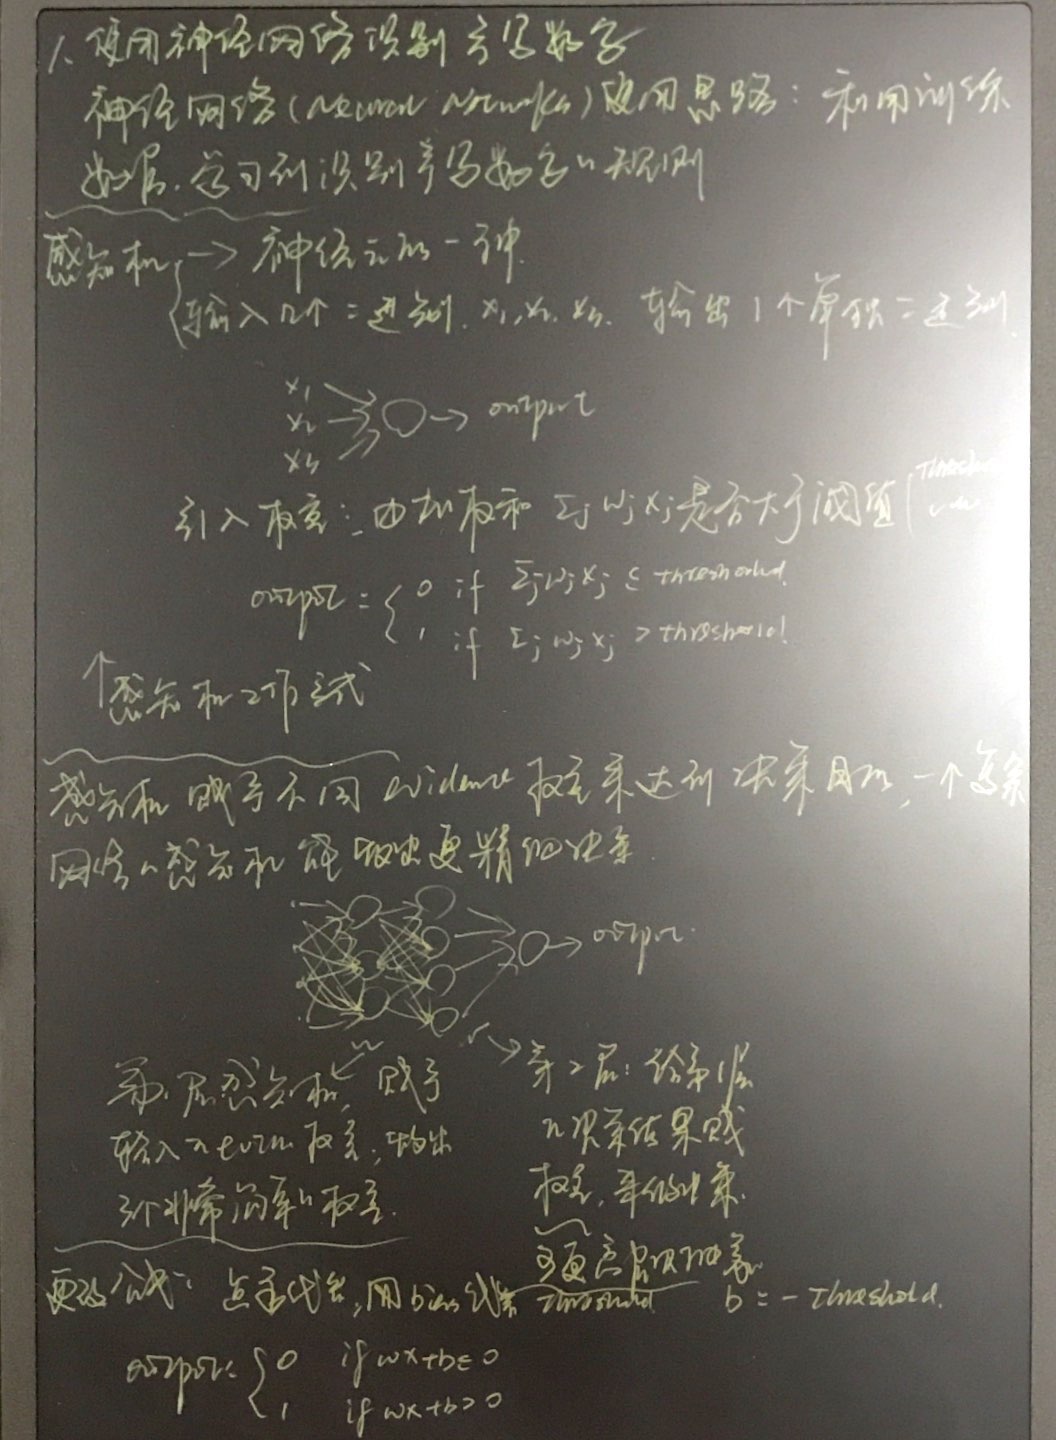 1. 使用神经网络识别手写数字
神经网络(Neural Networks)使用思路：利用训练
数据，学习到识别手写数字的规则
感知机 → 神经元的一种
输入几个二进制. x₁, x₂, x₃, 输出1个单独二进制.
x₁
x₂ → output
x₃
引入权重：由加权和 Σⱼ wⱼ xⱼ 是否大于阈值(
output = { 0 if Σⱼ wⱼ xⱼ ≤ threshold
1 if Σⱼ wⱼ xⱼ > threshold
↑感知机工作方式
感知机 赋予不同 evidence 权重来达到决策目的, 一个复杂
网络的感知机 能做出更精细决策.
→ output
第1层感知机, 赋予
输入 return 权重, 输出
3个非常简单的权重.
→ 第2层: 给第1层
的决策结果赋
权重, 来做决策.
更改公式: 点乘代替, 用bias代替 threshold b = -threshold.
output: { 0 if wx+b≤0
1 if wx+b>0